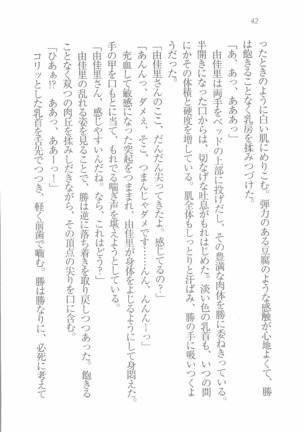 42
ったときのように白い肌にめりこむ。弾力のある豆腐のような感触が心地よくて、勝
は飽きることなく乳房を揉みつづけた。
「あ、あっ、あああっ」
由佳里は両手をベッドの上部に投げだし、その豊満な肉体を勝に委ねきっている。
半開きになった口からは、切なげな吐息がもれはじめた。淡い色の乳首も、いつの間
にかその体積と硬度を増している。肌全体もしっとりと汗ばみ、勝の手に吸いつくよ
うだった。
「由佳里さんのここ、だんだん尖ってきたよ。感じてるの？」
「あんんっ、ダメぇ、そこ、つまんじゃダメです……んん、んんんーっ」
充血して敏感になった突起をつままれ、由佳里が身体をよじるようにして身悶えた。
手の甲を口もとに当て、もれでる喘ぎ声を堪えようとしている。
「由佳里さん、感じやすいんだね。なら、これはどう？」
由佳里の乱れる姿を見ることで、勝は逆に落ち着きを取り戻しつつあった。飽きる
ことなく双つの肉丘を揉みしだきながら、その頂点の尖りを口に含む。
「ひあぁ!?　ああっ、ああーっ！」
コリッとした乳首を舌先でつつき、軽く前歯で噛む。勝は勝なりに、必死に考えて